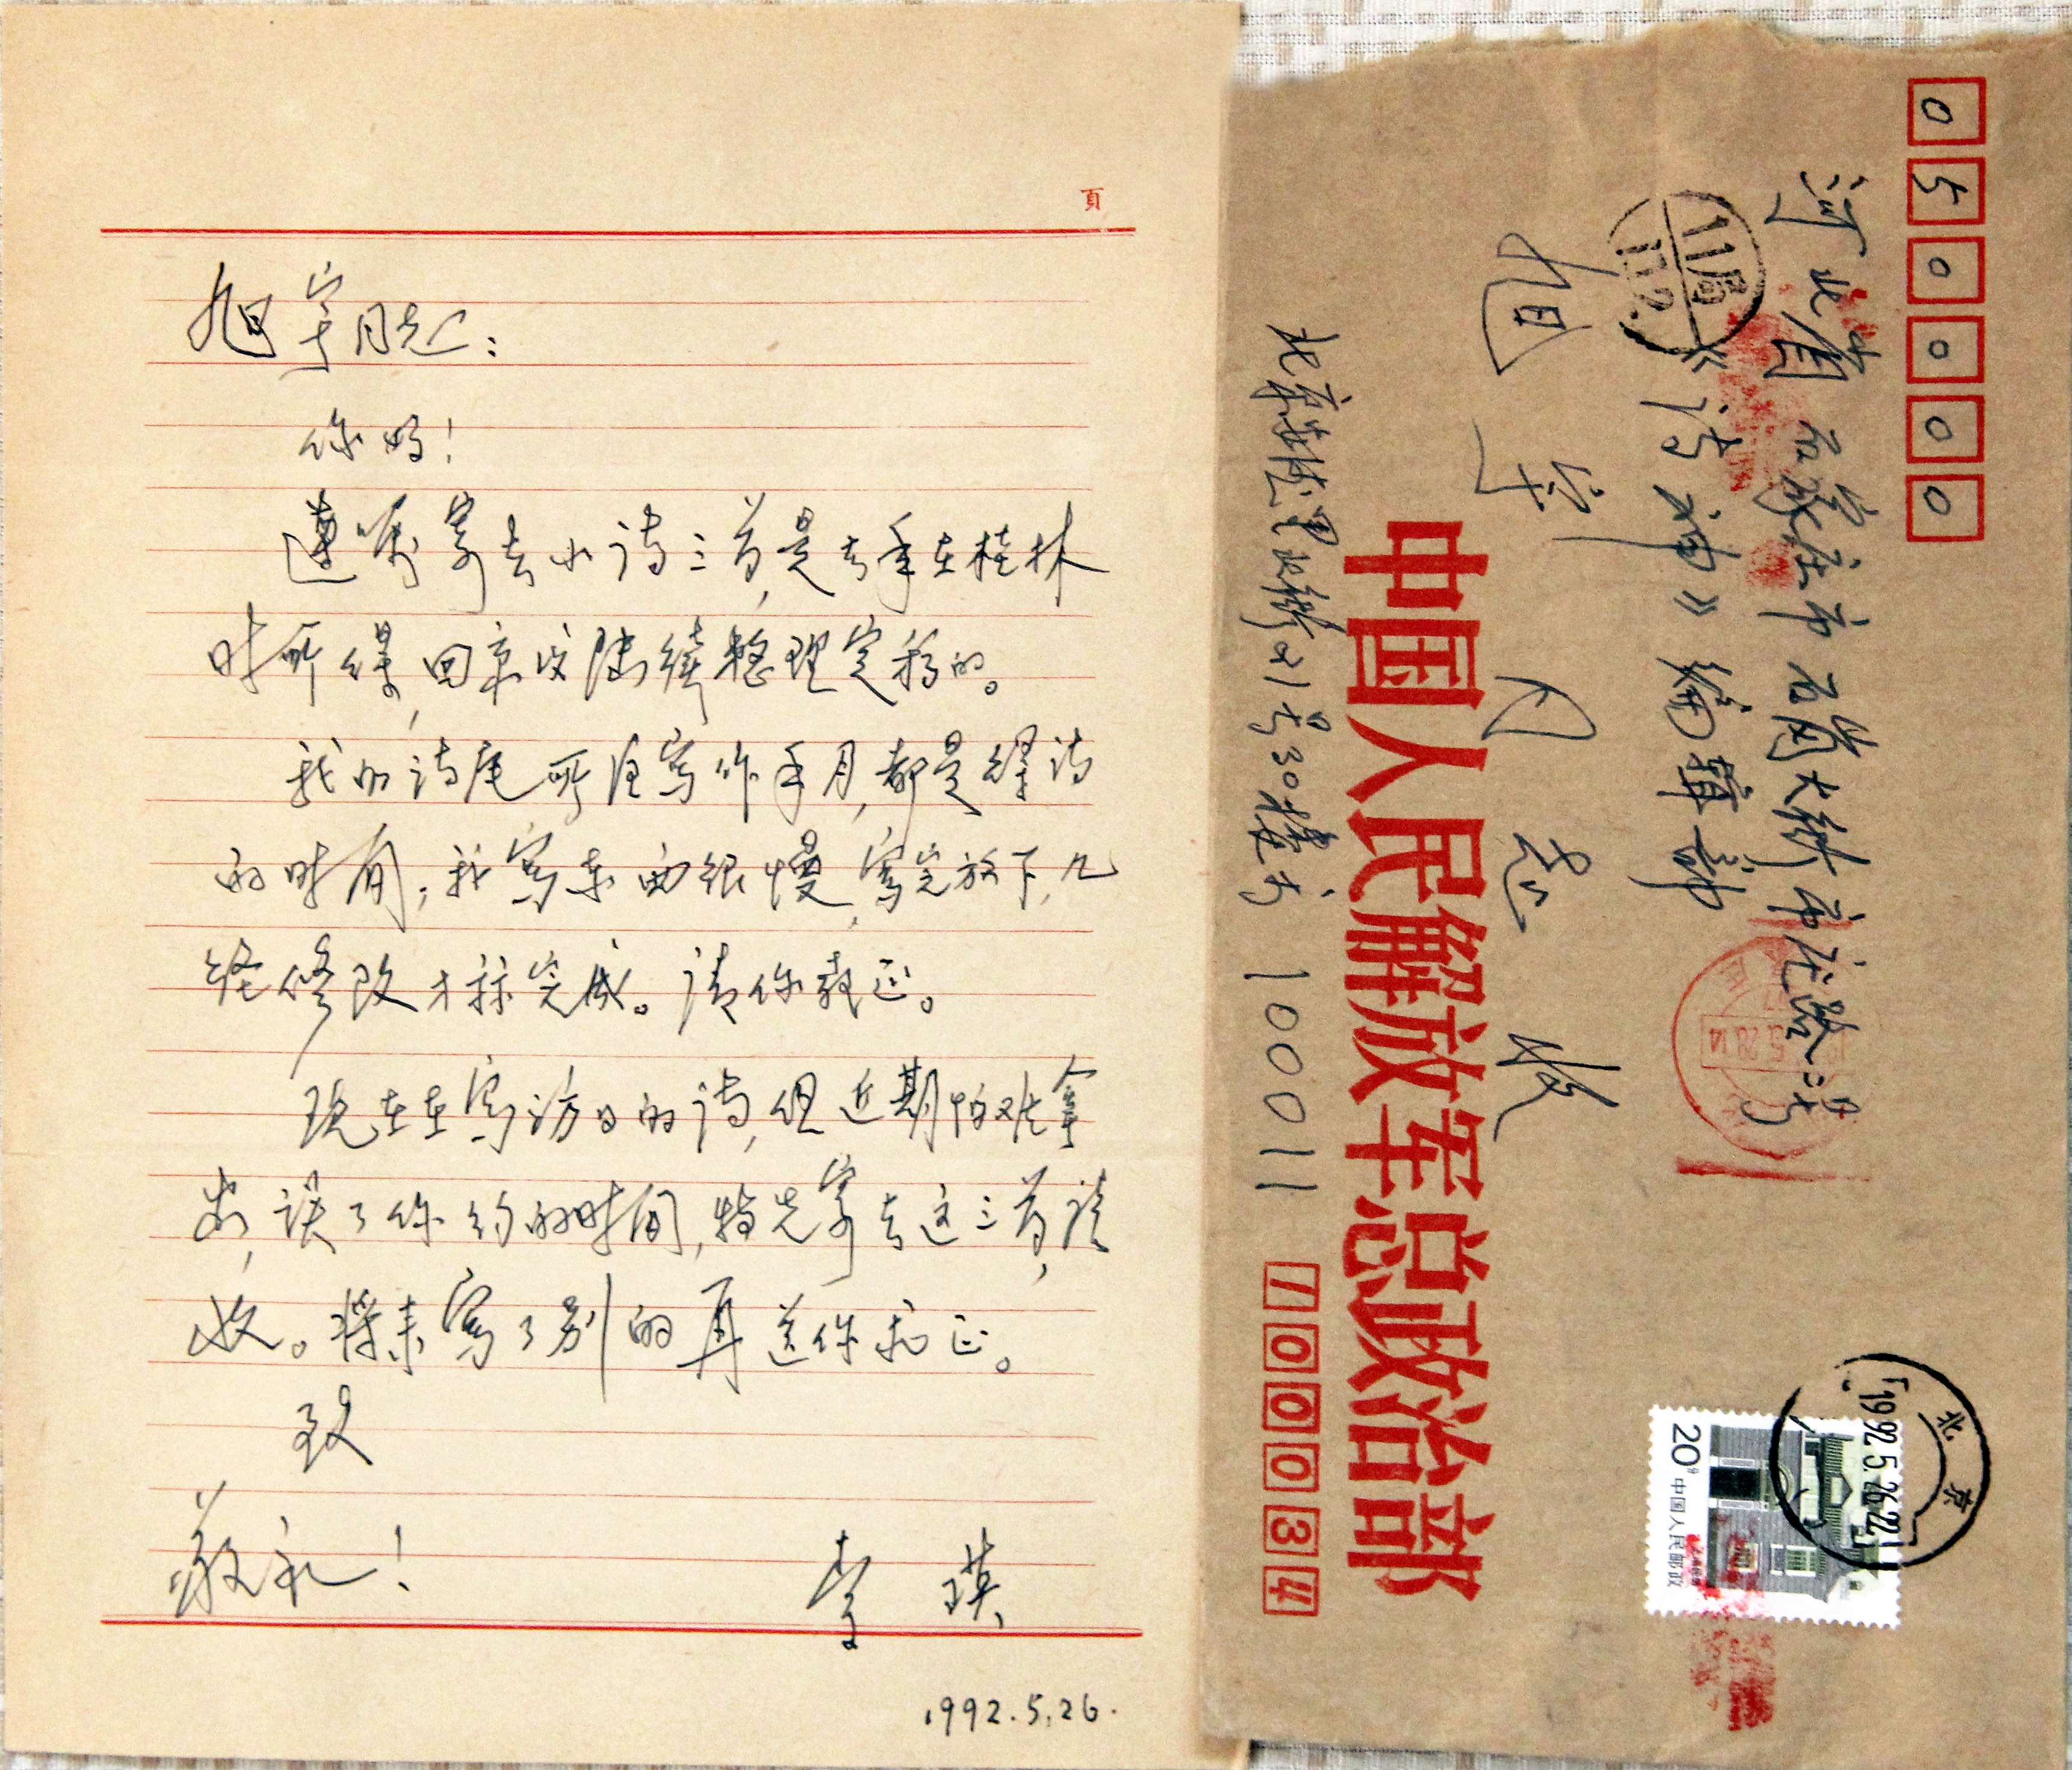 頁
旭宇同志：
你好！
遵嘱寄去小诗三首，是去年在桂林
时所得，回京后陆续整理定稿的。
我的诗尾所注写作年月，都是纪诗
的时间；我写东西很慢，写完放下，几
经修改才算完成。请你教正。
现在在写访日的诗，但近期怕难拿
出，误了你约的时间，特先寄去这三首，请
收。将来写了别的再送你刊正。
致
敬礼！
李瑛
1992.5.26.
050000
河北省石家庄市石岗大街市庄路2号
《诗神》编辑部
旭宇同志收
中国人民解放军总政治部
北京 21号30楼 100011
100034
11局
北京
1992.5.26.22
20分 中国人民邮政